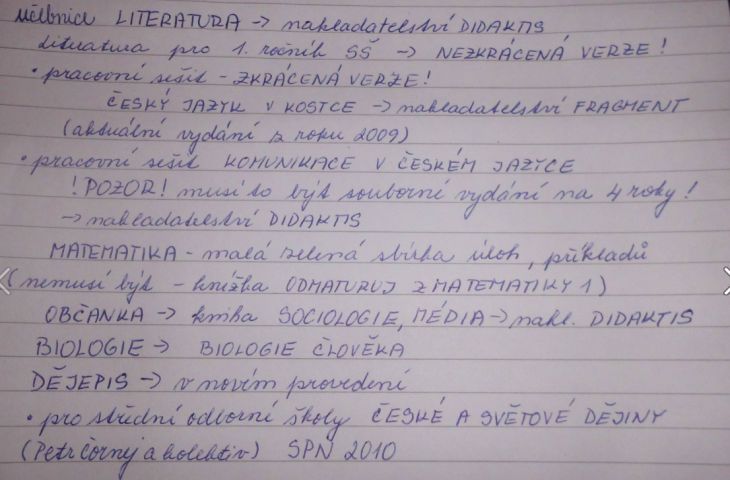 učebnice LITERATURA → nakladatelství DIDAKTIS
Literatura pro 1. ročník SŠ → NEZKRÁCENÁ VERZE!
• pracovní sešit - ZKRÁCENÁ VERZE!
ČESKÝ JAZYK V KOSTCE → nakladatelství FRAGMENT
(aktuální vydání z roku 2009)
• pracovní sešit KOMUNIKACE V ČESKÉM JAZYCE
! POZOR! musí to být souborní vydání na 4 roky!
→ nakladatelství DIDAKTIS
MATEMATIKA - malá zelená sbírka úloh, příkladů
(nemusí být - knížka ODMATURUJ Z MATEMATIKY 1)
OBČANKA → kniha SOCIOLOGIE, MÉDIA → nakl. DIDAKTIS
BIOLOGIE → BIOLOGIE ČLOVĚKA
DĚJEPIS → v novém provedení
• pro střední odborné školy ČESKÉ A SVĚTOVÉ DĚJINY
(Petr čorný a kolektiv) SPN 2010